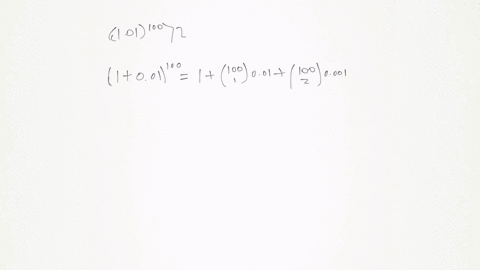 (1.01)^100 > 2
(1+0.01)^100 = 1 + (100 1) 0.01 + (100 2) 0.001